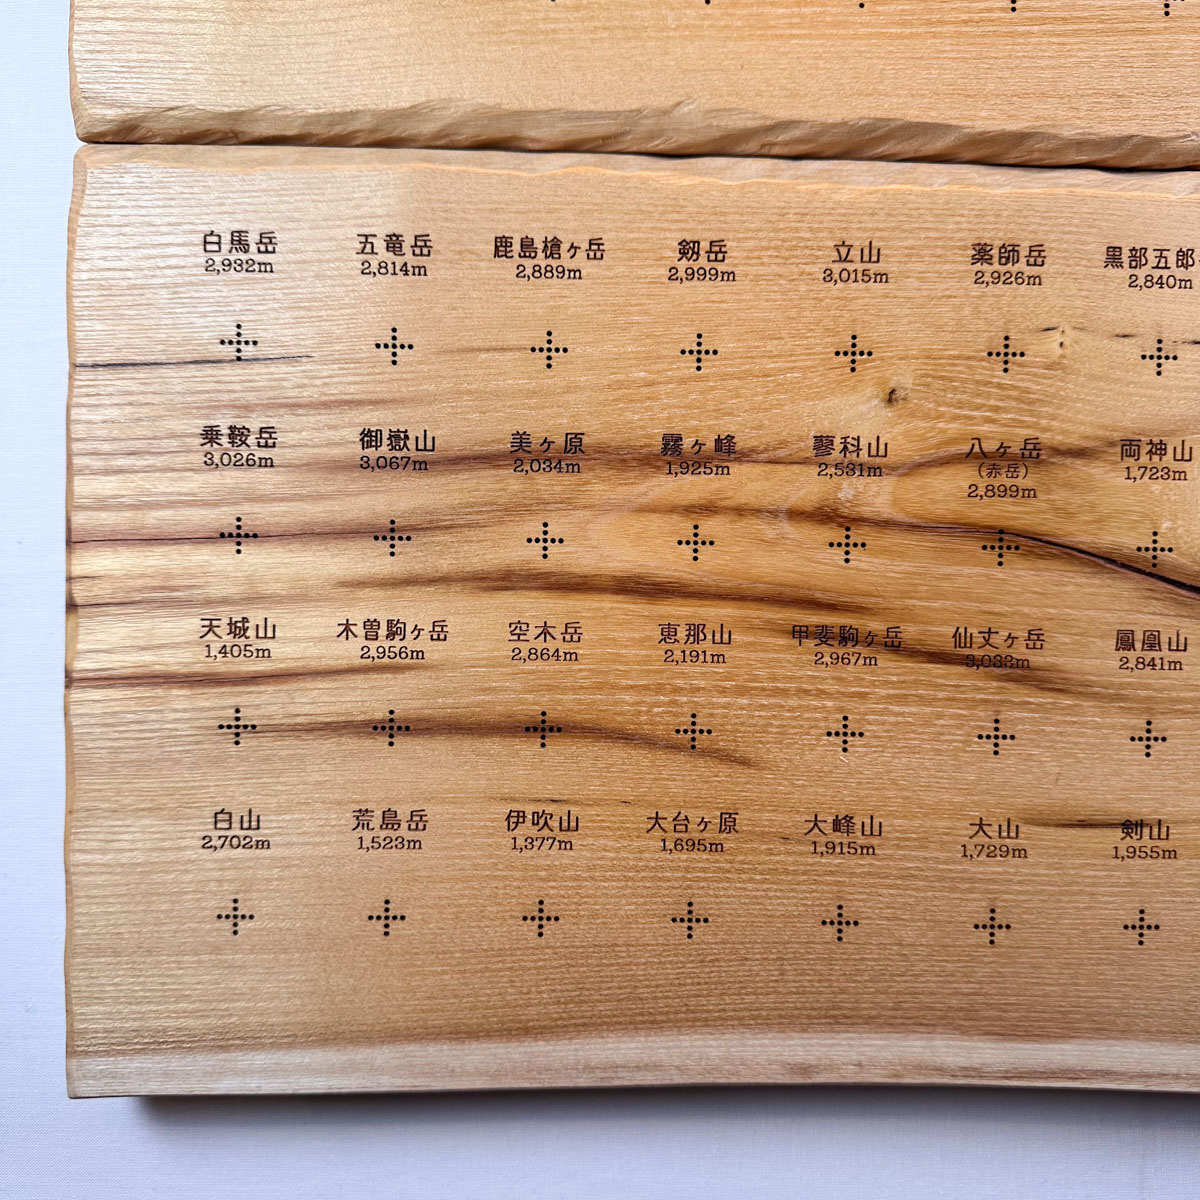 白馬岳 五竜岳 鹿島槍ヶ岳 剱岳 立山 薬師岳 黒部五郎
2,932m 2,814m 2,889m 2,999m 3,015m 2,926m 2,840m
乗鞍岳 御嶽山 美ヶ原 霧ヶ峰 蓼科山 八ヶ岳 両神山
(赤岳)
3,026m 3,067m 2,034m 1,925m 2,531m 2,899m 1,723m
天城山 木曽駒ヶ岳 空木岳 恵那山 甲斐駒ヶ岳 仙丈ヶ岳 鳳凰山
1,405m 2,956m 2,864m 2,191m 2,967m 3,033m 2,841m
白山 荒島岳 伊吹山 大台ヶ原 大峰山 大山 剣山
2,702m 1,523m 1,377m 1,695m 1,915m 1,729m 1,955m